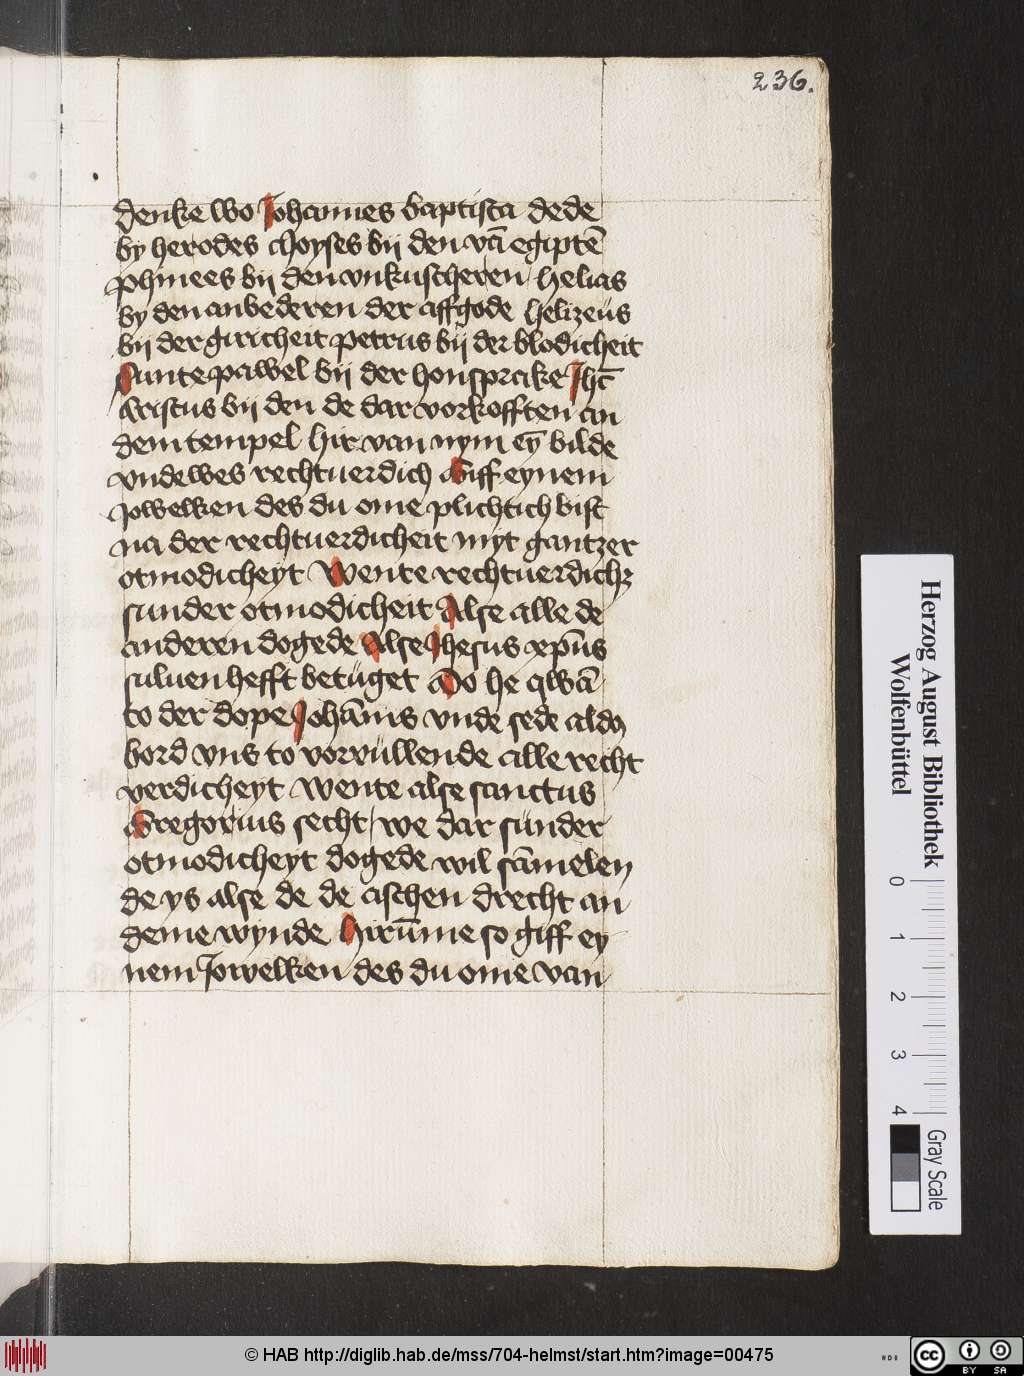 236.
denke wo Johannes baptista dede
by herodes Moyses bij den vā egiptē
phinees bij den vnkuscheren helias
by den anbederen der affgode helizeüs
bij der giricheit petrus bij der blodicheit
Sunte pawel bij der honsprake Jhc̄
cristus bij den de dar vorkofften an
dem tempel hir van nym eȳ bilde
vnde wes rechtuerdich Giff eynem
Jowelken des du ome plichtich bist
na der rechtuerdicheit myt gantzer
otmodicheyt Wente rechtuerdichz
sunder otmodicheit Alse alle de
anderen dogede Alse Jhesus xp̄us
suluen hefft betüget Do he qwā
to der dope Johānis vnde sede aldꝫ
bord vns to vorvüllende alle recht
verdicheyt Wente alse sanctus
Gregorius secht / we dar sünder
otmodicheyt dogede wil sāmelen
de ys alse de de aschen drecht an
deme wynde hirūme so giff ey
nem Jowelken des du ome van
Herzog August Bibliothek
Wolfenbüttel
0 1 2 3 4
Gray Scale
© HAB http://diglib.hab.de/mss/704-helmst/start.htm?image=00475
HAB
cc BY SA